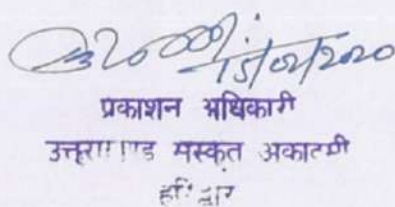 15/02/2020
प्रकाशन अधिकारी
उत्तराखण्ड संस्कृत अकादमी
हरिद्वार